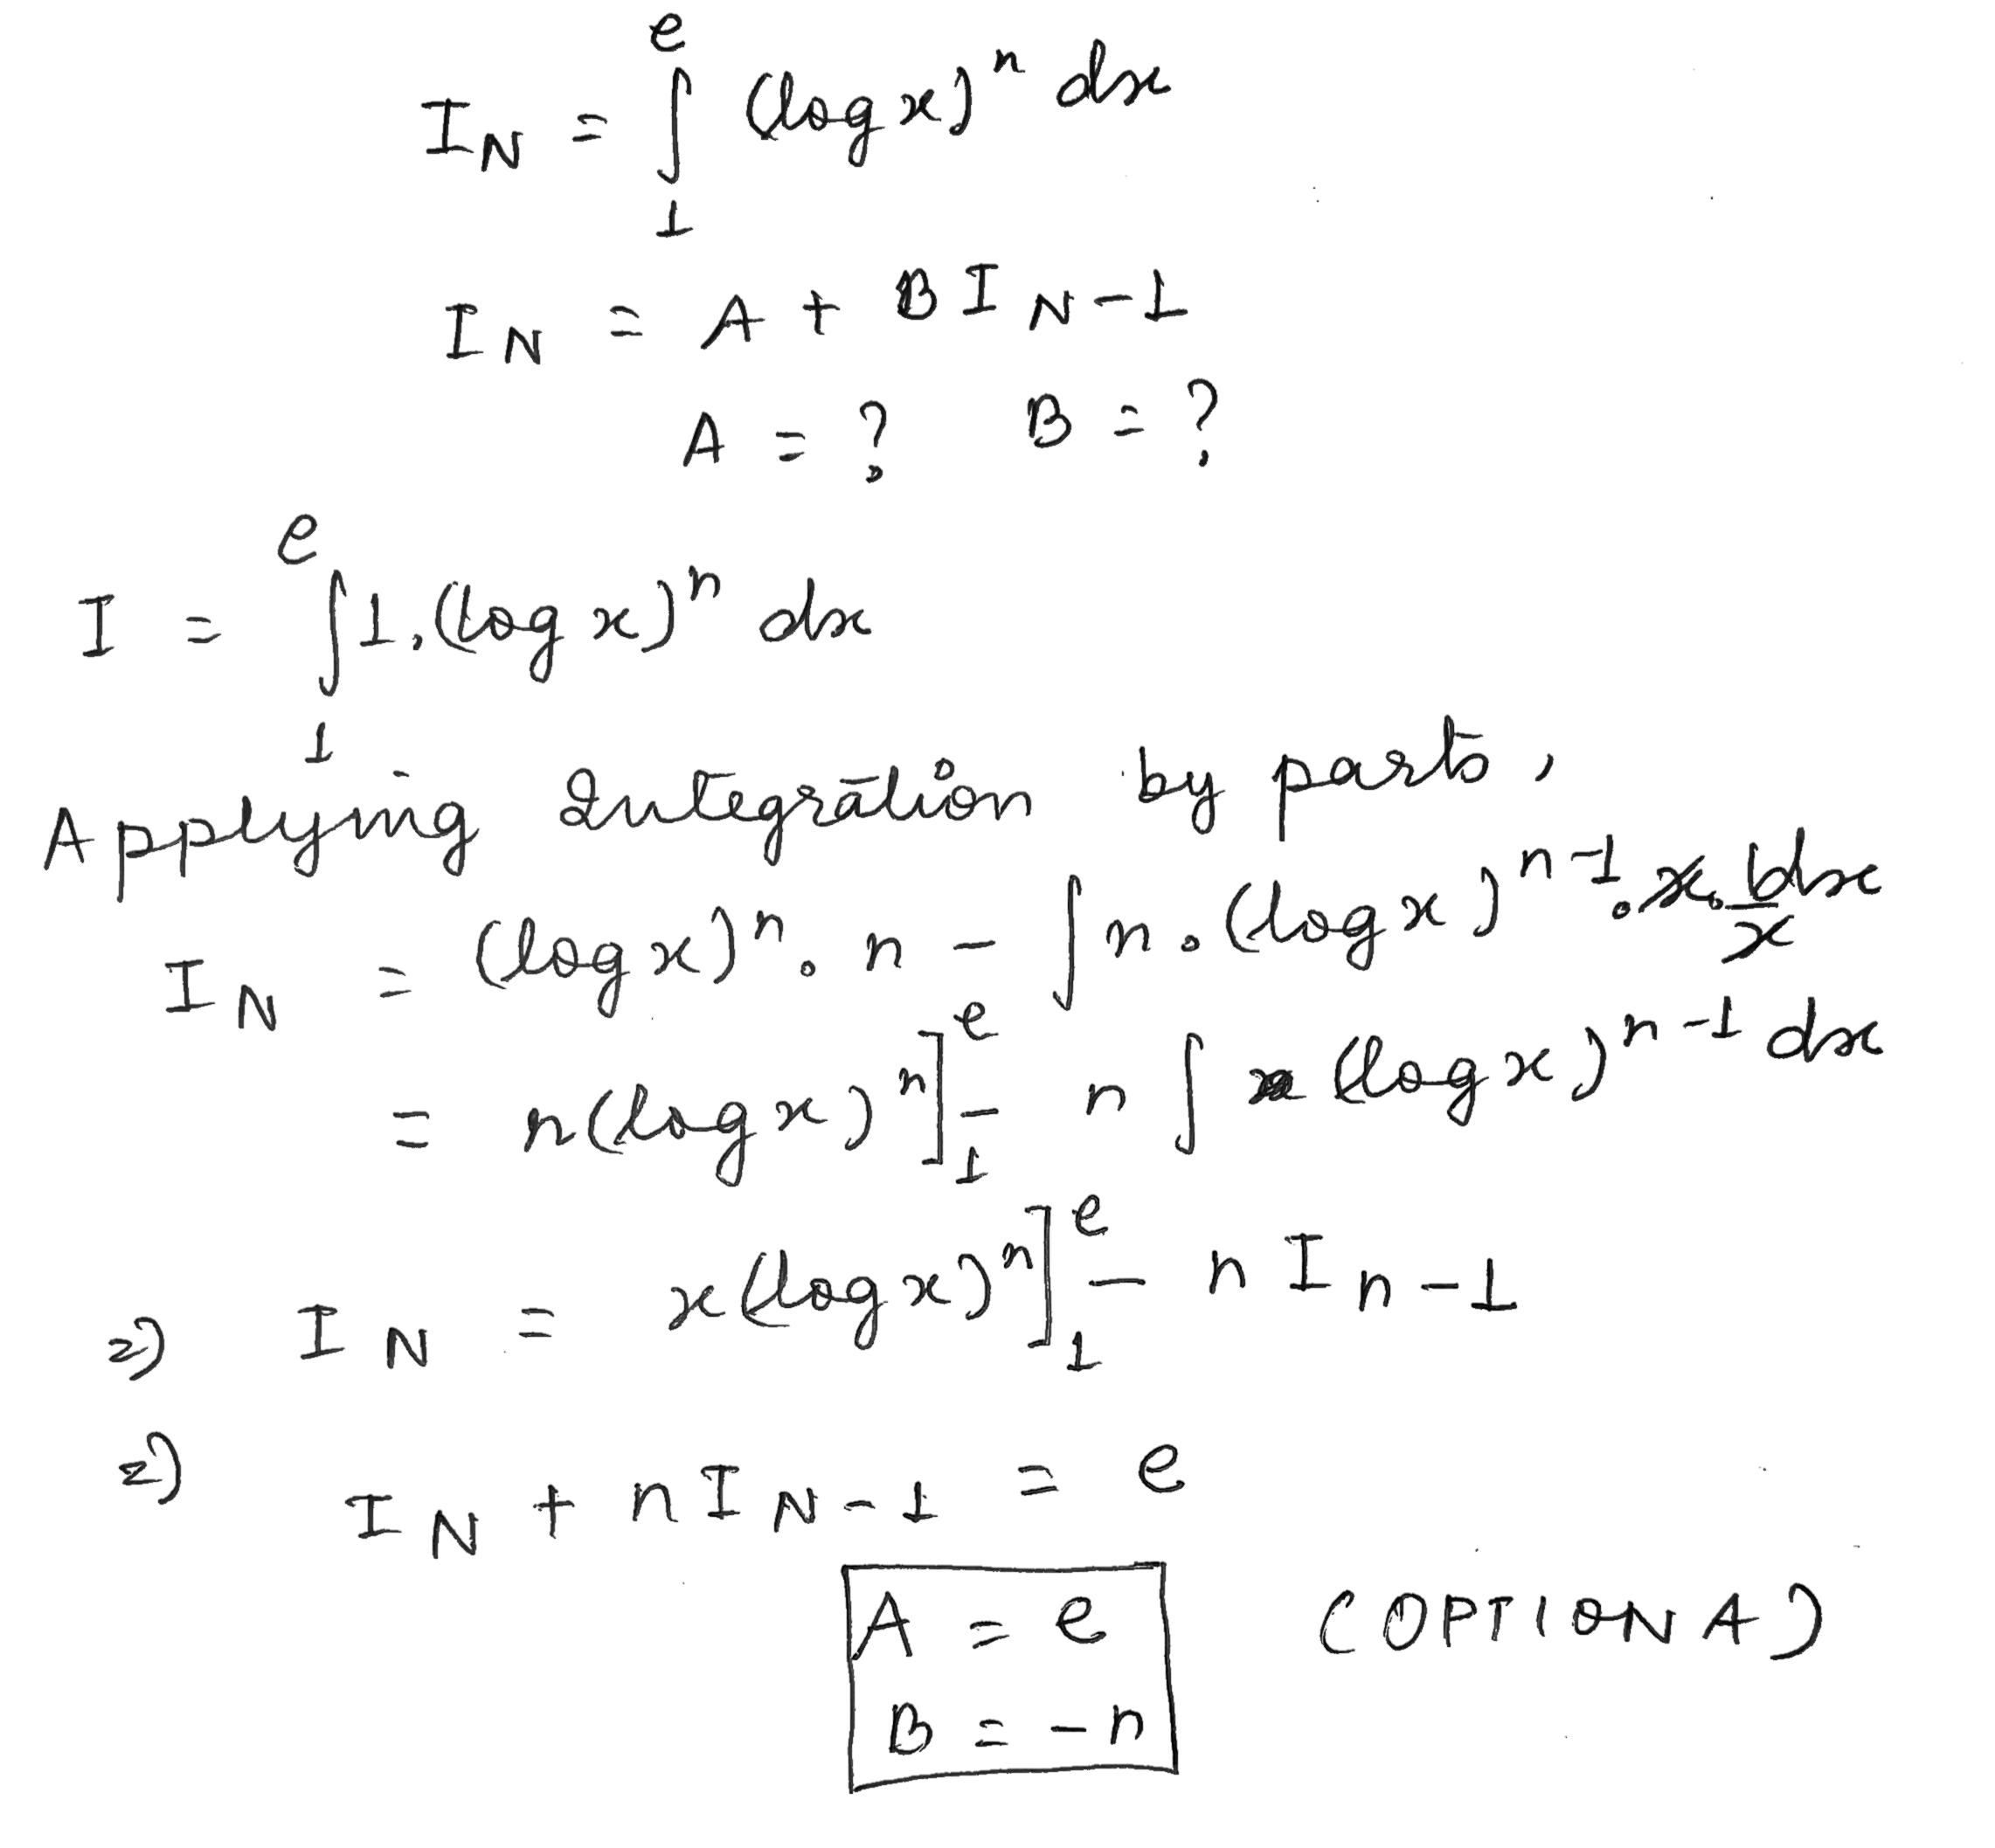 I_N = ∫_1^e (log x)^n dx
I_N = A + B I_{N-1}
A = ? B = ?
I = ∫_1^e 1.(log x)^n dx
Applying Integration by parts,
I_N = (log x)^n . n - ∫ n. (log x)^{n-1} . x . 1/x dx
= n(log x)^n]_1^e - n ∫ (log x)^{n-1} dx
=) I_N = x(log x)^n]_1^e - n I_{n-1}
=) I_N + n I_{N-1} = e
A = e (OPTION A)
B = -n